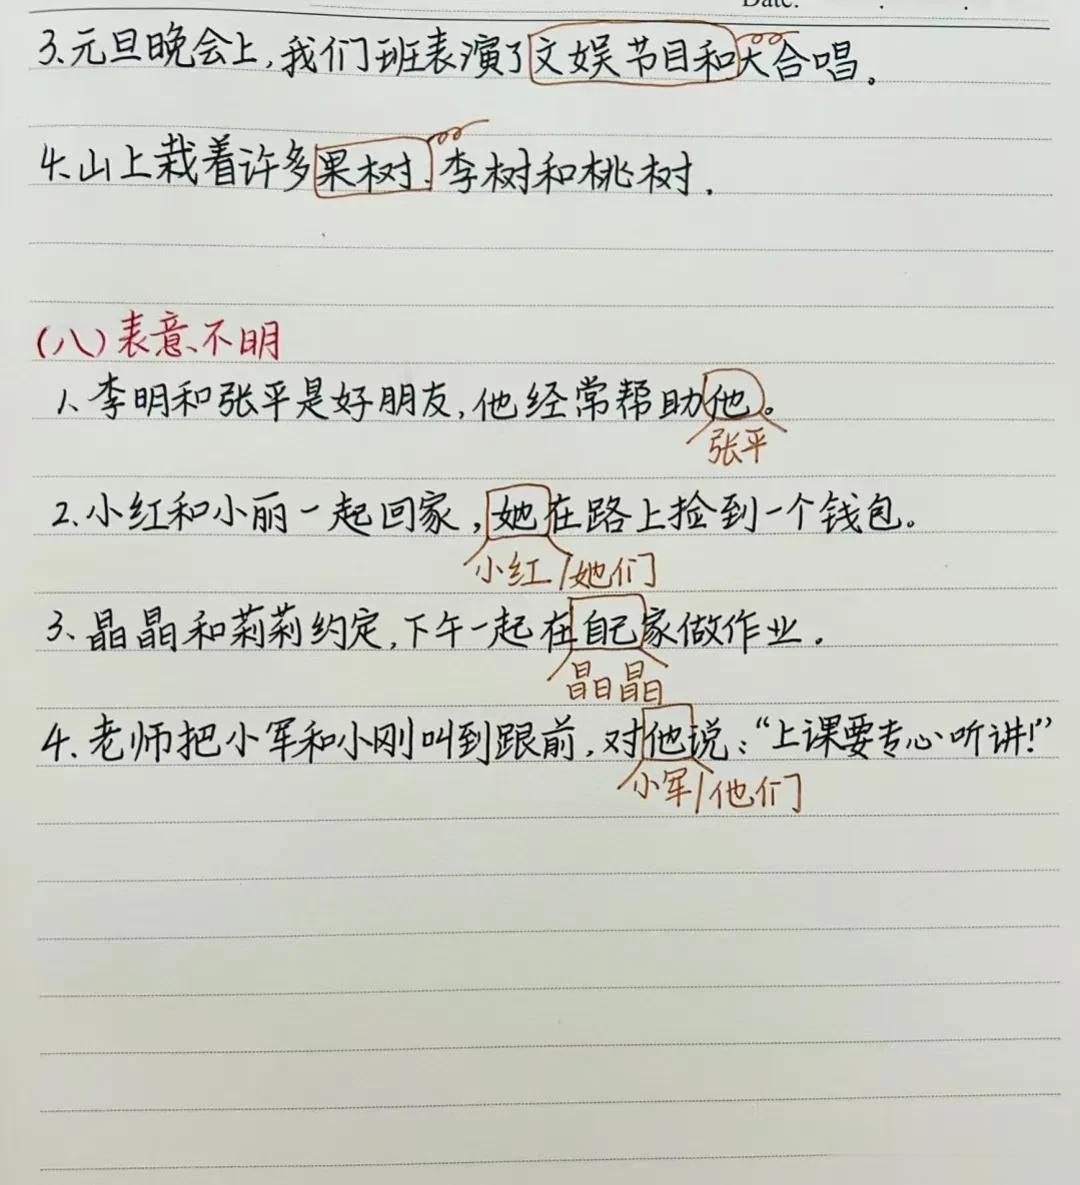 Date:
3.元旦晚会上,我们班表演了文娱节目和大合唱。
4.山上栽着许多果树、李树和桃树.
(八)表意不明
1、李明和张平是好朋友,他经常帮助他。
张平
2.小红和小丽一起回家,她在路上捡到一个钱包。
小红/她们
3、晶晶和莉莉约定,下午一起在自己家做作业.
晶晶
4.老师把小军和小刚叫到跟前,对他说:“上课要专心听讲!”
小军/他们